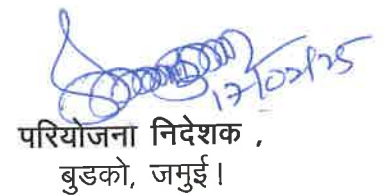 17/02/25
परियोजना निदेशक ,
बुडको, जमुई।